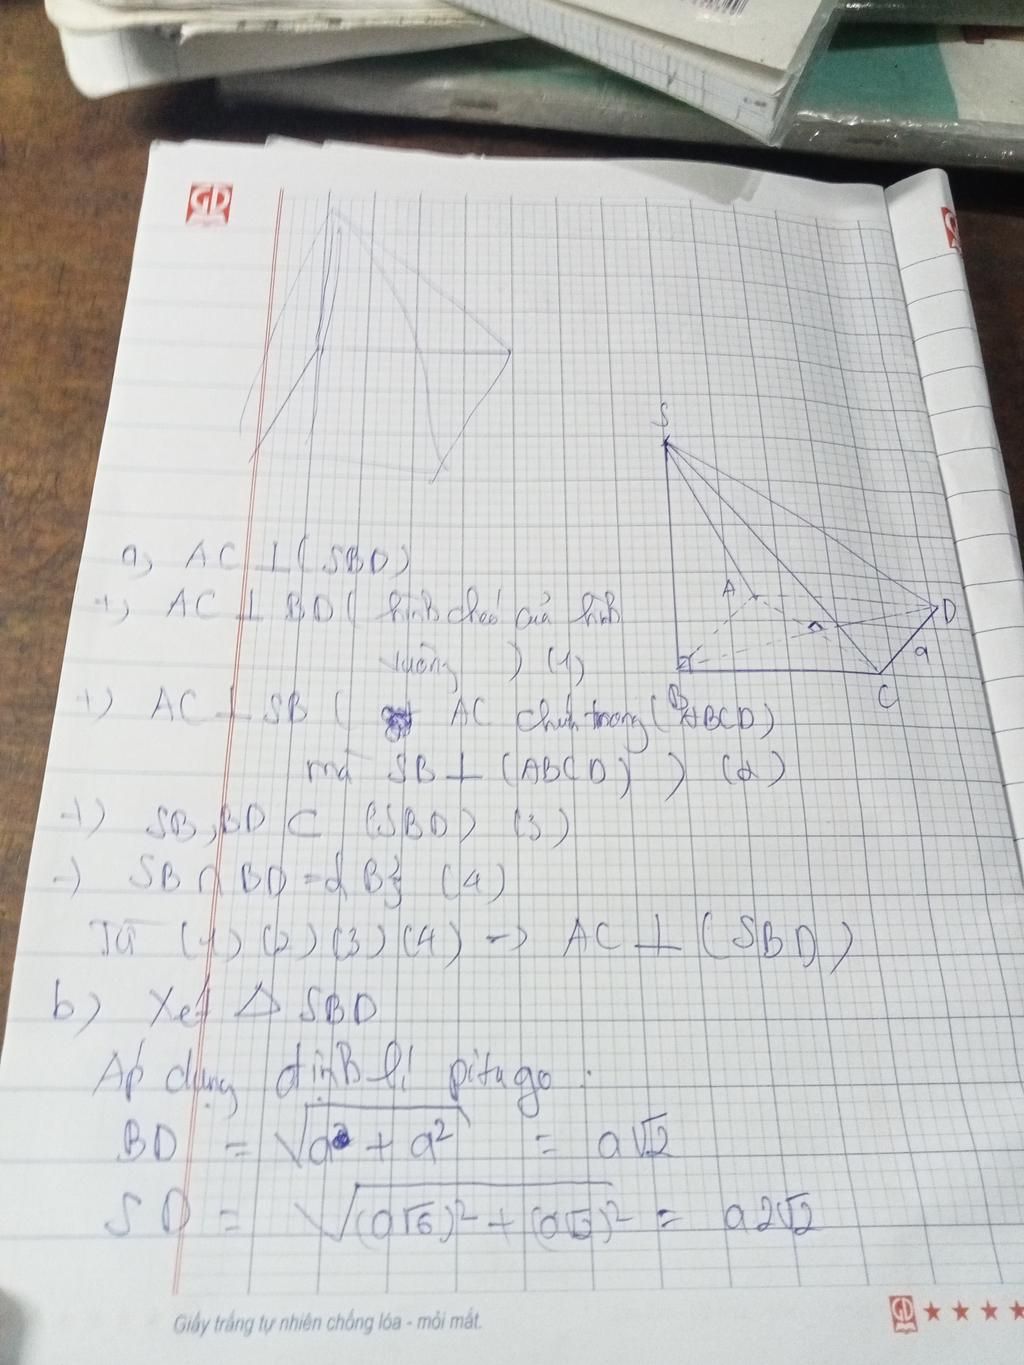 GD
S
A
D
a
B
C
a, AC ⊥ (SBD)
+) AC ⊥ BD ( hình chéo của hình
vuông ) (1)
+) AC ⊥ SB ( AC chứa trong (ABCD)
mà SB ⊥ (ABCD) ) (2)
+) SB, BD ⊂ (SBD) (3)
+) SB ∩ BD = {B} (4)
Từ (1) (2) (3) (4) → AC ⊥ (SBD)
b) Xét Δ SBD
Áp dụng định lí pitago :
BD = √(a² + a²) = a√2
SD = √((a√6)² + (a√2)²) = a2√2
Giấy trắng tự nhiên chống lóa - mỏi mắt.
GD